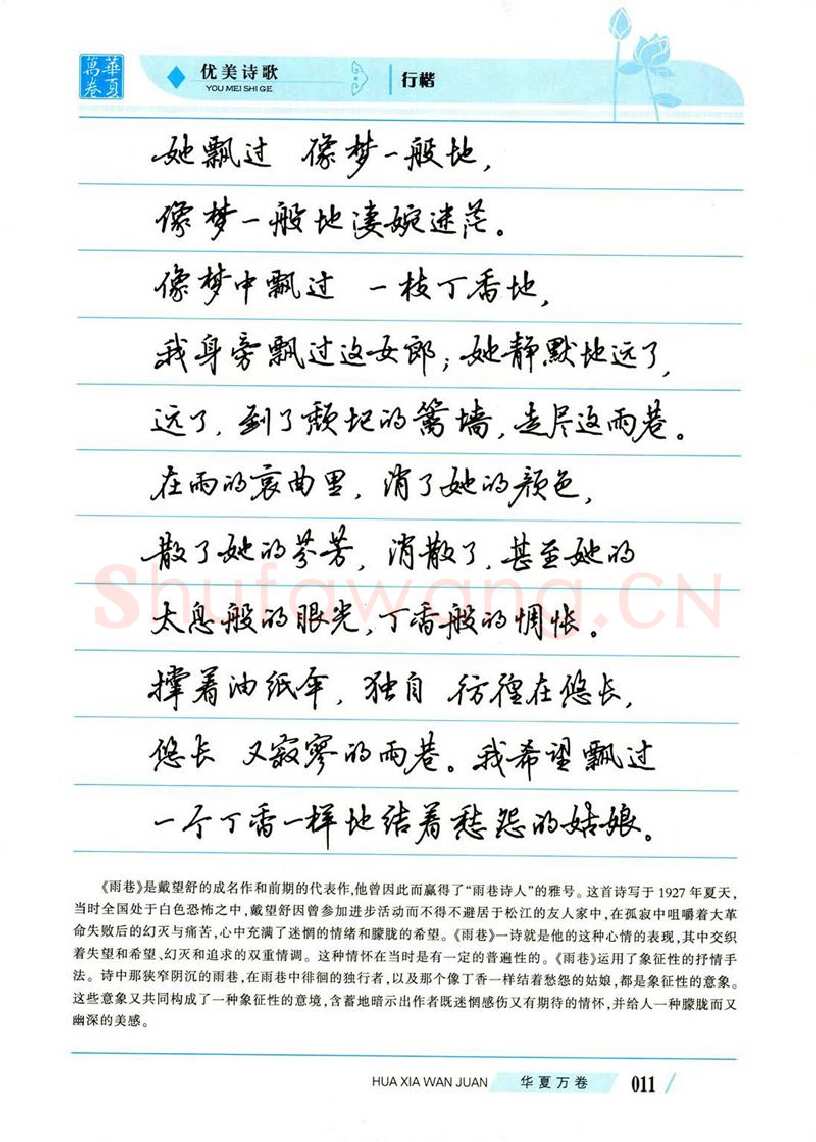 華夏萬卷
优美诗歌
YOU MEI SHI GE
行楷
她飘过 像梦一般地,
像梦一般地凄婉迷茫。
像梦中飘过 一枝丁香地,
我身旁飘过这女郎;她静默地远了,
远了,到了颓圮的篱墙,走尽这雨巷。
在雨的哀曲里,消了她的颜色,
散了她的芬芳,消散了,甚至她的
太息般的眼光,丁香般的惆怅。
撑着油纸伞,独自 彷徨在悠长,
悠长 又寂寥的雨巷。我希望飘过
一个丁香一样地结着愁怨的姑娘。
Shufawang.CN
《雨巷》是戴望舒的成名作和前期的代表作,他曾因此而赢得了“雨巷诗人”的雅号。这首诗写于1927年夏天,
当时全国处于白色恐怖之中,戴望舒因曾参加进步活动而不得不避居于松江的友人家中,在孤寂中咀嚼着大革
命失败后的幻灭与痛苦,心中充满了迷惘的情绪和朦胧的希望。《雨巷》一诗就是他的这种心情的表现,其中交织
着失望和希望、幻灭和追求的双重情调。这种情怀在当时是有一定的普遍性的。《雨巷》运用了象征性的抒情手
法。诗中那狭窄阴沉的雨巷,在雨巷中徘徊的独行者,以及那个像丁香一样结着愁怨的姑娘,都是象征性的意象。
这些意象又共同构成了一种象征性的意境,含蓄地暗示出作者既迷惘感伤又有期待的情怀,并给人一种朦胧而又
幽深的美感。
HUA XIA WAN JUAN 华夏万卷 011